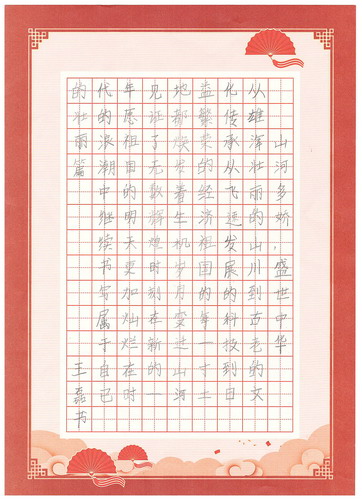 山河多娇,盛世中华
从雄浑壮丽的山川到古老的文
化传承从飞速发展的科技到日
益繁荣的经济祖国的每一寸土
地都焕发着生机岁月变迁山河
见证了无数辉煌时刻在新的一
年愿祖国的明天更加灿烂在时
代的浪潮中继续书写属于自己
的壮丽篇 王磊书